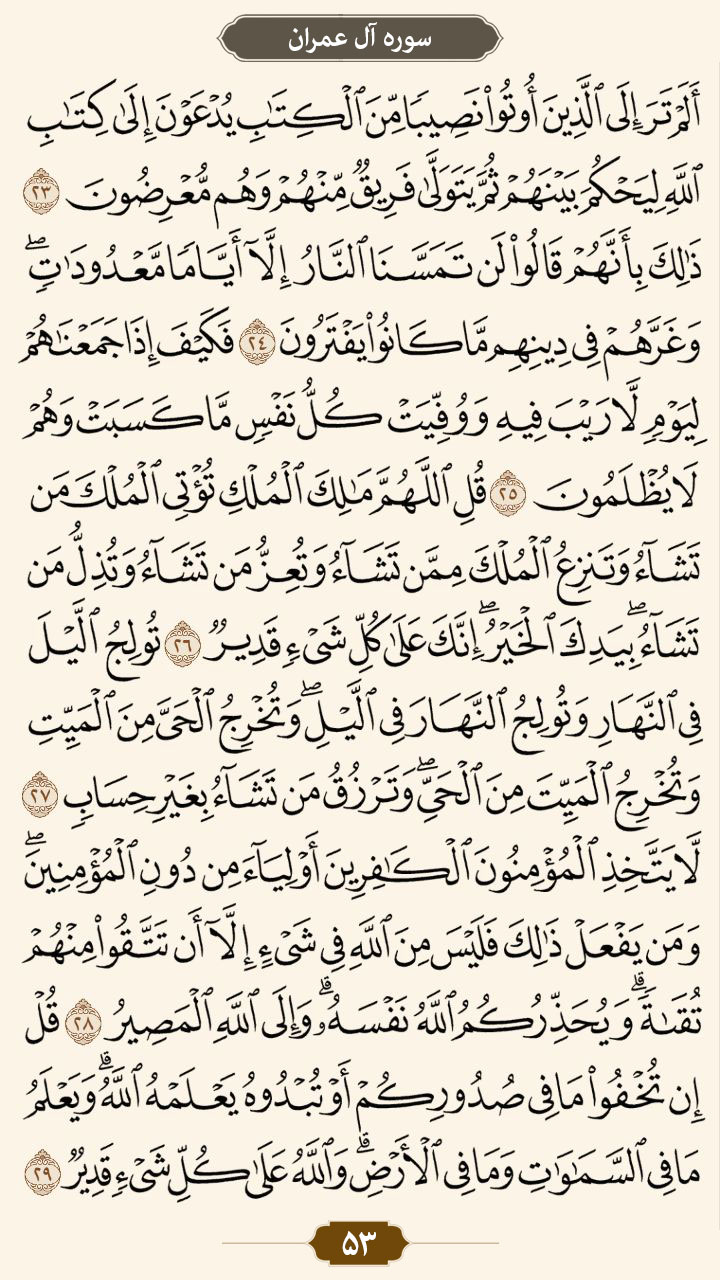 سوره آل عمران
أَلَمْ تَرَ إِلَى ٱلَّذِينَ أُوتُوا۟ نَصِيبًا مِّنَ ٱلْكِتَٰبِ يُدْعَوْنَ إِلَىٰ كِتَٰبِ
ٱللَّهِ لِيَحْكُمَ بَيْنَهُمْ ثُمَّ يَتَوَلَّىٰ فَرِيقٌ مِّنْهُمْ وَهُم مُّعْرِضُونَ ٢٣
ذَٰلِكَ بِأَنَّهُمْ قَالُوا۟ لَن تَمَسَّنَا ٱلنَّارُ إِلَّآ أَيَّامًا مَّعْدُودَٰتٍ ۖ
وَغَرَّهُمْ فِى دِينِهِم مَّا كَانُوا۟ يَفْتَرُونَ ٢٤ فَكَيْفَ إِذَا جَمَعْنَٰهُمْ
لِيَوْمٍ لَّا رَيْبَ فِيهِ وَوُفِّيَتْ كُلُّ نَفْسٍ مَّا كَسَبَتْ وَهُمْ
لَا يُظْلَمُونَ ٢٥ قُلِ ٱللَّهُمَّ مَٰلِكَ ٱلْمُلْكِ تُؤْتِى ٱلْمُلْكَ مَن
تَشَآءُ وَتَنزِعُ ٱلْمُلْكَ مِمَّن تَشَآءُ وَتُعِزُّ مَن تَشَآءُ وَتُذِلُّ مَن
تَشَآءُ ۖ بِيَدِكَ ٱلْخَيْرُ ۖ إِنَّكَ عَلَىٰ كُلِّ شَىْءٍ قَدِيرٌ ٢٦ تُولِجُ ٱلَّيْلَ
فِى ٱلنَّهَارِ وَتُولِجُ ٱلنَّهَارَ فِى ٱلَّيْلِ ۖ وَتُخْرِجُ ٱلْحَىَّ مِنَ ٱلْمَيِّتِ
وَتُخْرِجُ ٱلْمَيِّتَ مِنَ ٱلْحَىِّ ۖ وَتَرْزُقُ مَن تَشَآءُ بِغَيْرِ حِسَابٍ ٢٧
لَّا يَتَّخِذِ ٱلْمُؤْمِنُونَ ٱلْكَٰفِرِينَ أَوْلِيَآءَ مِن دُونِ ٱلْمُؤْمِنِينَ ۖ
وَمَن يَفْعَلْ ذَٰلِكَ فَلَيْسَ مِنَ ٱللَّهِ فِى شَىْءٍ إِلَّآ أَن تَتَّقُوا۟ مِنْهُمْ
تُقَىٰةً ۗ وَيُحَذِّرُكُمُ ٱللَّهُ نَفْسَهُۥ ۗ وَإِلَى ٱللَّهِ ٱلْمَصِيرُ ٢٨ قُلْ
إِن تُخْفُوا۟ مَا فِى صُدُورِكُمْ أَوْ تُبْدُوهُ يَعْلَمْهُ ٱللَّهُ ۗ وَيَعْلَمُ
مَا فِى ٱلسَّمَٰوَٰتِ وَمَا فِى ٱلْأَرْضِ ۗ وَٱللَّهُ عَلَىٰ كُلِّ شَىْءٍ قَدِيرٌ ٢٩
۵۳